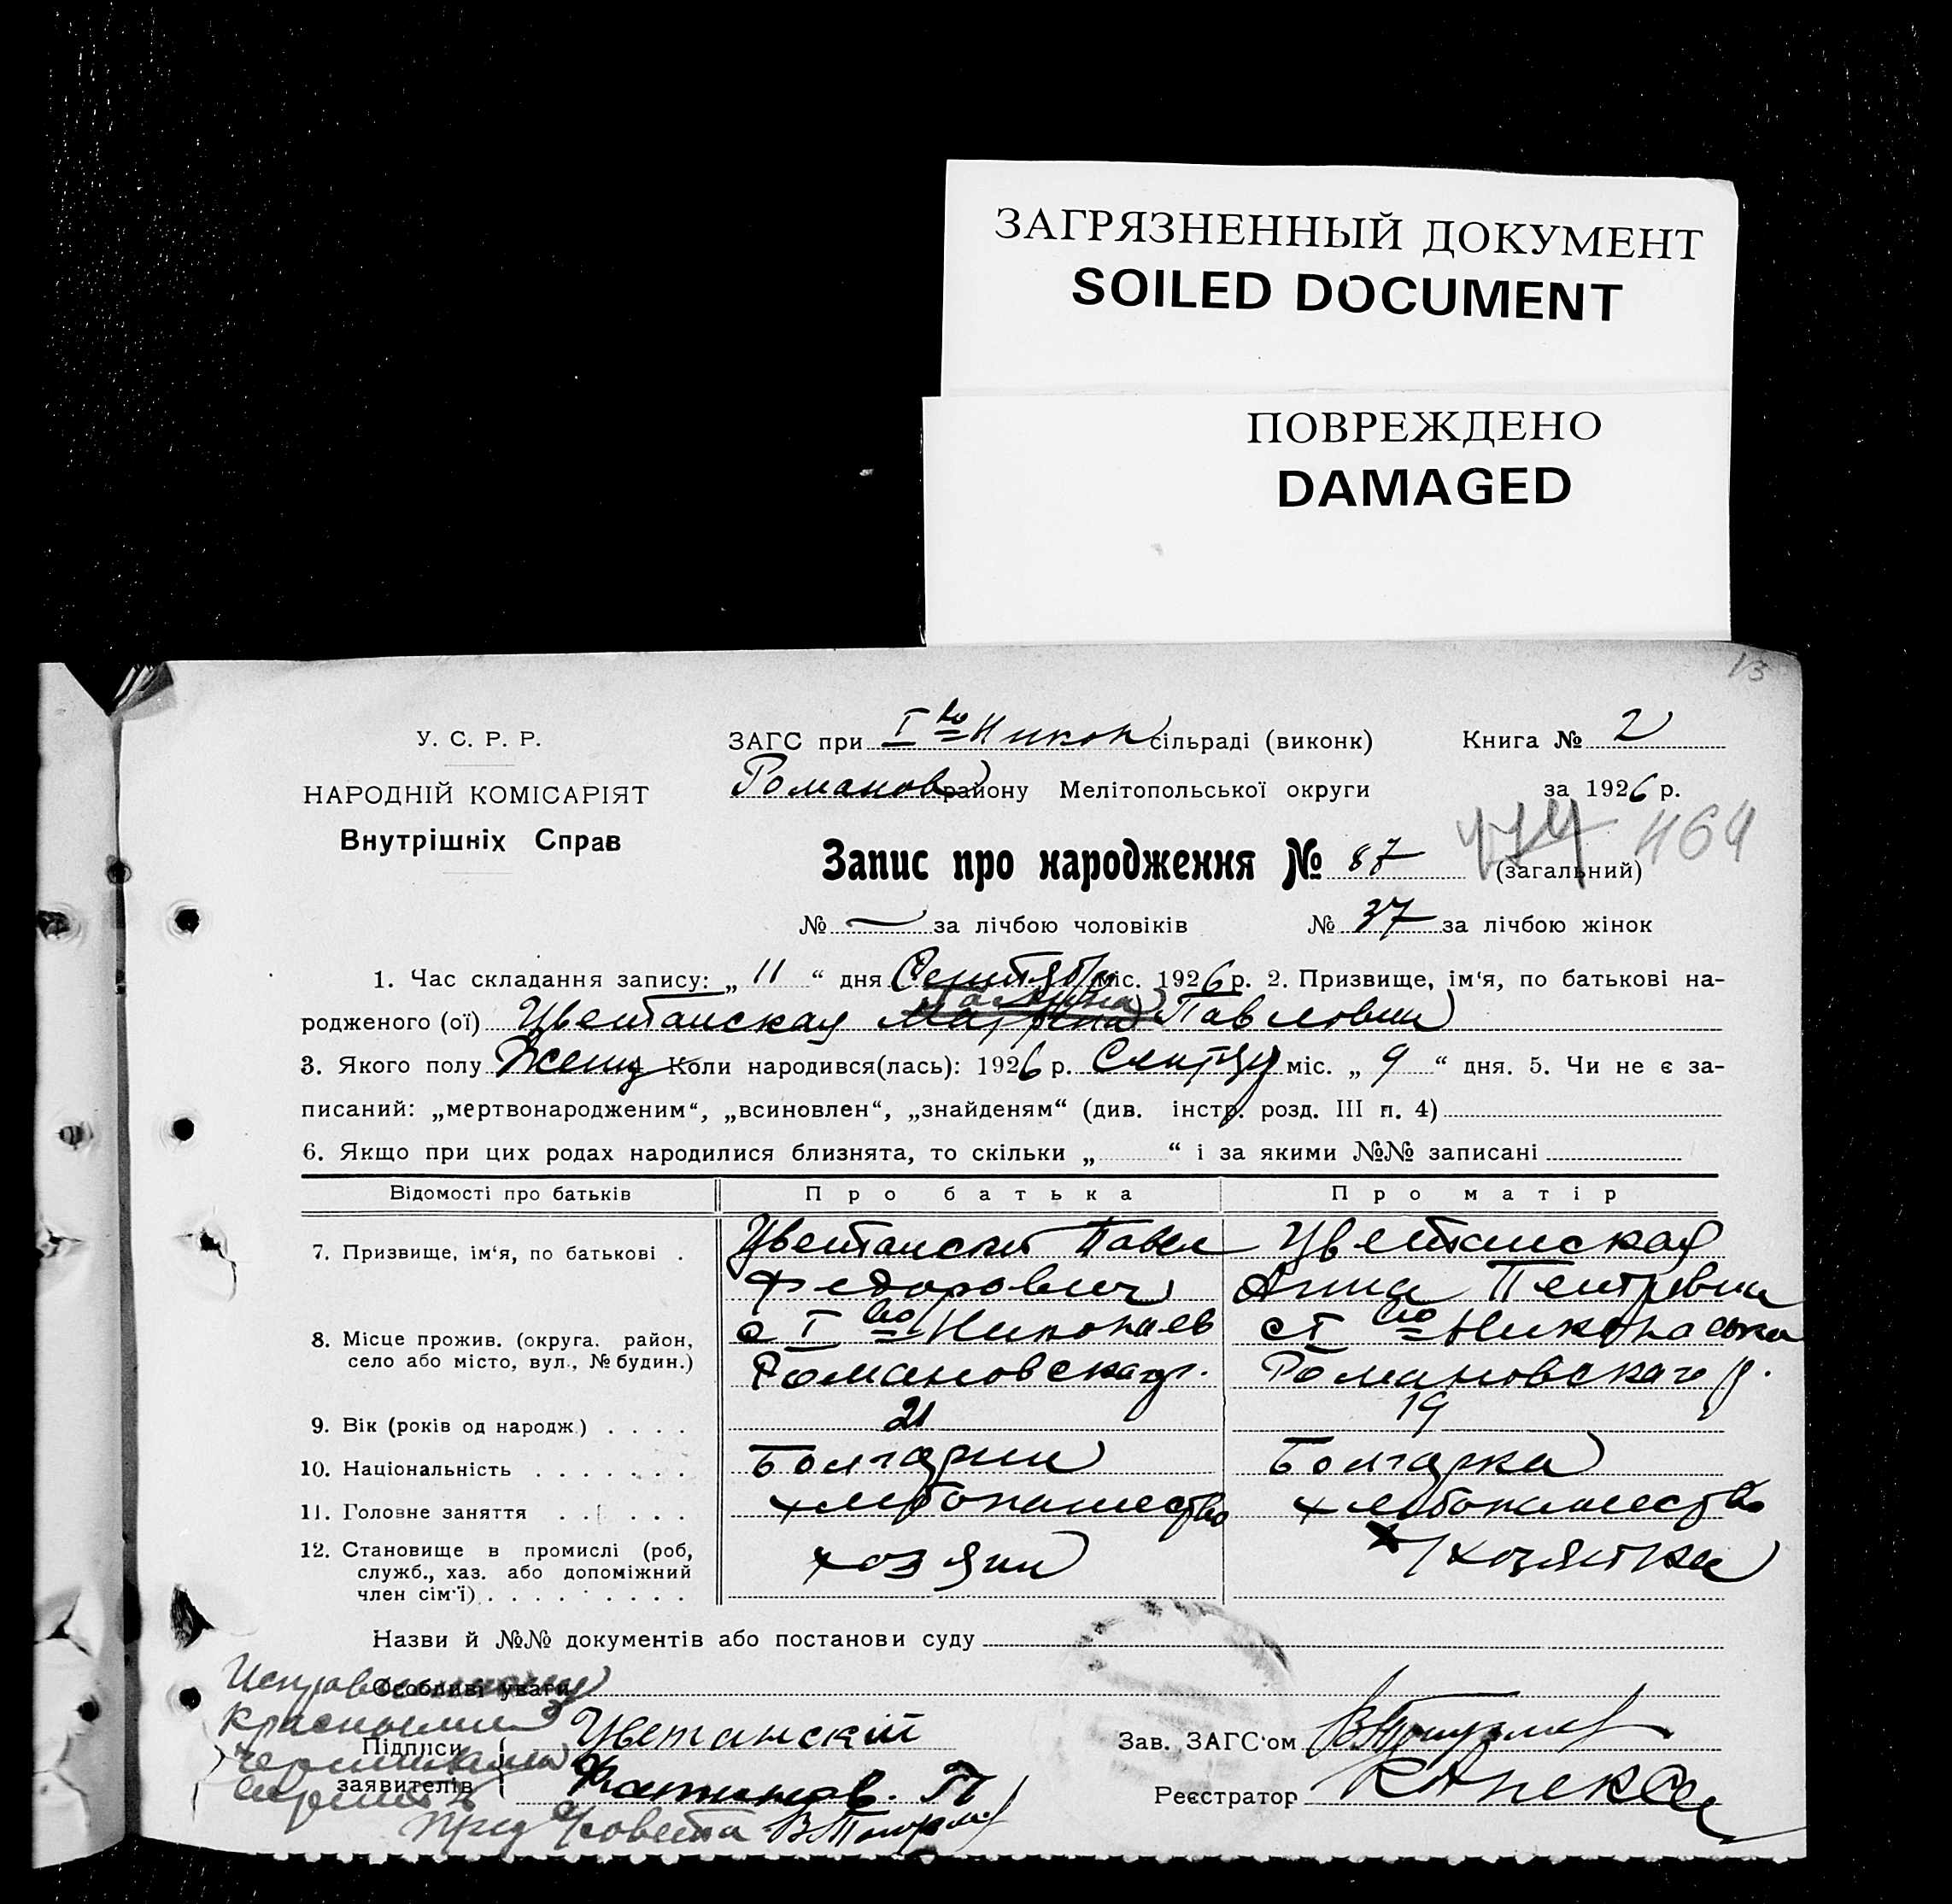 ЗАГРЯЗНЕННЫЙ ДОКУМЕНТ
SOILED DOCUMENT
ПОВРЕЖДЕНО
DAMAGED
13
У. С. Р. Р.
НАРОДНІЙ КОМІСАРІЯТ
Внутрішніх Справ
ЗАГС при I во Никол сільраді (виконк) Книга № 2
Романов району Мелітопольської округи за 1926 р.
Запис про народження № 87 (загальний) 464
№ — за лічбою чоловіків № 37 за лічбою жінок
1. Час складання запису: „ 11 “ дня Сентябр міс. 1926 р. 2. Призвище, ім‘я, по батькові на-
родженого (ої) Цветанская Павловна
3. Якого полу Женщ Коли народився(лась): 1926 р. Сентяб міс. „ 9 “ дня. 5. Чи не є за-
писаний: „мертвонародженим“, „всиновлен“, „знайденям“ (див. інстр. розд. III п. 4)
6. Якщо при цих родах народилися близнята, то скільки „ “ і за якими №№ записані
Відомості про батьків Про батька Про матір
7. Призвище, ім‘я, по батькові . Цветанский Павел Цветанская
Федорович Анна Петровна
8. Місце прожив. (округа. район, с I во Николаев с I во Николаевка
село або місто, вул., № будин.) Романовскаго р. Романовскаго р.
9. Вік (років од народж.) . . . . 21 19
10. Національність . . . . . . . Болгарин Болгарка
11. Головне заняття . . . . . хлебопашество хлебопашество
12. Становище в промислі (роб, хозяин хозяйка
служб., хаз. або допоміжний
член сім‘ї) . . . . . . . . .
Назви й №№ документів або постанови суду
Особливі уваги
Исправленному
красными
чернилами
верить
Підписи
заявителів
Цветанский
Зав. ЗАГС‘ом
Реєстратор
Пред Совета